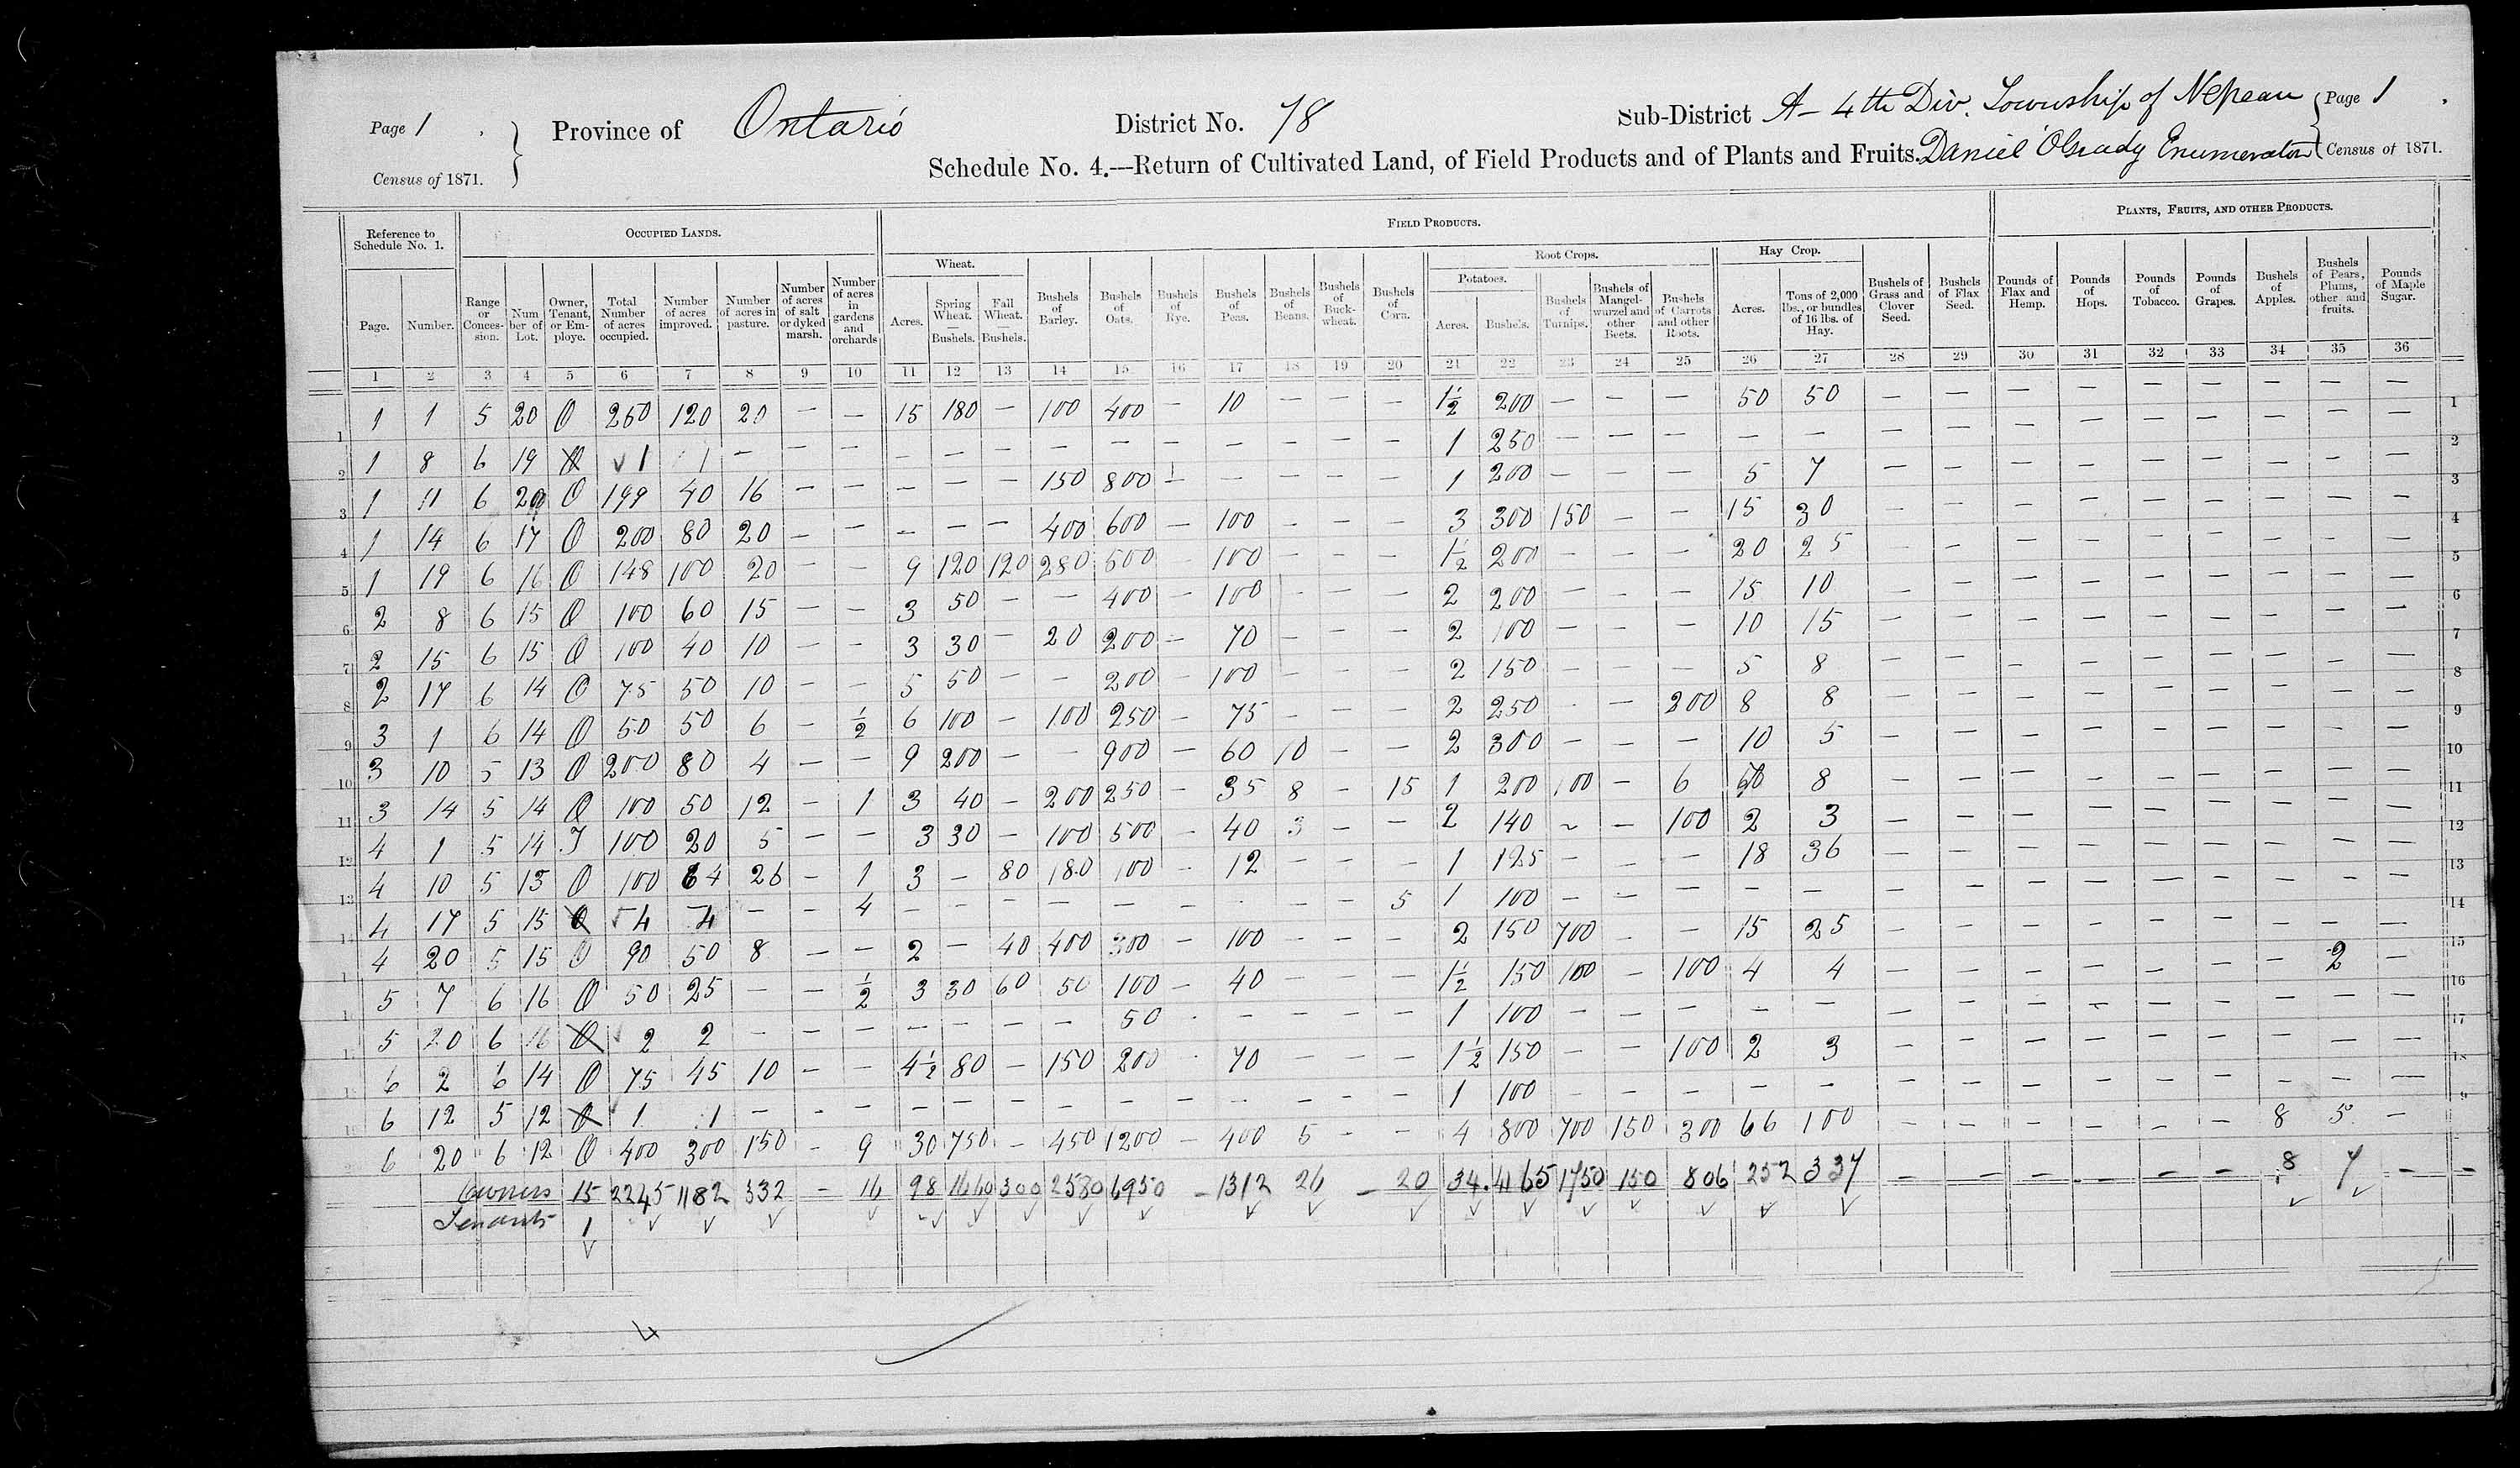 Page 1 Province of Ontario District No. 78 Sub-District A - 4th Div. Township of Nepean Page 1
Census of 1871. Schedule No. 4.—Return of Cultivated Land, of Field Products and of Plants and Fruits. Daniel O'Grady Enumerator Census of 1871.
Reference to Schedule No. 1. OCCUPIED LANDS. FIELD PRODUCTS. PLANTS, FRUITS, AND OTHER PRODUCTS.
Wheat. Root Crops. Hay Crop.
Potatoes.
Page. Number. Range or Conces-sion. Num ber of Lot. Owner, Tenant, or Em-ploye. Total Number of acres occupied. Number of acres improved. Number of acres in pasture. Number of acres of salt or dyked marsh. Number of acres in gardens and orchards Acres. Spring Wheat. — Bushels. Fall Wheat. — Bushels. Bushels of Barley. Bushels of Oats. Bushels of Rye. Bushels of Peas. Bushels of Beans. Bushels of Buck-wheat. Bushels of Corn. Acres. Bushels. Bushels of Turnips. Bushels of Mangel-wurzel and other Beets. Bushels of Carrots and other Roots. Acres. Tons of 2,000 lbs., or bundles of 16 lbs. of Hay. Bushels of Grass and Clover Seed. Bushels of Flax Seed. Pounds of Flax and Hemp. Pounds of Hops. Pounds of Tobacco. Pounds of Grapes. Bushels of Apples. Bushels of Pears, Plums, other and fruits. Pounds of Maple Sugar.
1 2 3 4 5 6 7 8 9 10 11 12 13 14 15 16 17 18 19 20 21 22 23 24 25 26 27 28 29 30 31 32 33 34 35 36
1 1 1 5 20 O 260 120 20 — — 15 180 — 100 400 — 10 — — — 1½ 200 — — — 50 50 — — — — — — — — — 1
2 1 8 6 19 O 1 1 — — — — — — — — — — — — — 1 250 — — — — — — — — — — — — — — 2
3 1 11 6 20 O 199 40 16 — — — — — 150 800 — — — — — 1 200 — — — 5 7 — — — — — — — — — 3
4 1 14 6 17 O 200 80 20 — — — — — 400 600 — 100 — — — 3 300 150 — — 15 30 — — — — — — — — — 4
5 1 19 6 16 O 148 100 20 — — 9 120 120 280 500 100 — — — 1½ 200 — — — 20 25 — — — — — — — — — 5
6 2 8 6 15 O 100 60 15 — — 3 50 — — 400 — 100 — — — 2 200 — — — 15 10 — — — — — — — — — 6
7 2 15 6 15 O 100 40 10 — — 3 30 — 20 200 — 70 — — — 2 100 — — — 10 15 — — — — — — — — — 7
8 2 17 6 14 O 75 50 10 — — 5 50 — — 200 — 100 — — — 2 150 — — — 5 8 — — — — — — — — — 8
9 3 1 6 14 O 50 50 6 — ½ 6 100 — 100 250 — 75 — — — 2 250 — — 200 8 8 — — — — — — — — — 9
10 3 10 5 13 O 200 80 4 — — 9 200 — — 900 — 60 10 — — 2 300 — — — 10 5 — — — — — — — — — 10
11 3 14 5 14 O 100 50 12 — 1 3 40 — 200 250 — 35 8 — 15 1 200 100 — 6 8 — — — — — — — — — 11
12 4 1 5 14 T 100 20 5 — — 3 30 — 100 500 — 40 3 — — 2 140 — — 100 2 3 — — — — — — — — — 12
13 4 10 5 15 O 100 64 26 — 1 3 — 80 180 100 — 12 — — — 1 125 — — — 18 36 — — — — — — — — — 13
14 4 17 5 15 O 4 4 — — 4 — — — — — — — — — 5 1 100 — — — — — — — — — — — — — — 14
4 20 5 15 O 90 50 8 — — 2 — 40 400 300 — 100 — — — 2 150 700 — — 15 25 — — — — — — — — — 15
5 7 6 16 O 50 25 — — ½ 3 30 60 50 100 — 40 — — — 1½ 150 100 — 100 4 4 — — — — — — — 2 — 16
5 20 6 16 O 2 2 — — — — — — — 50 — — — — — 1 100 — — — — — — — — — — — — — — 17
6 2 6 14 O 75 45 10 — — 4½ 80 — 150 200 — 70 — — — 1½ 150 — — 100 2 3 — — — — — — — — — 18
6 12 5 12 O 1 1 — — — — — — — — — — — — — 1 100 — — — — — — — — — — — — — — 9
6 20 6 12 O 400 300 150 — 9 30 750 — 450 1200 — 400 5 — — 4 800 700 150 300 66 100 — — — — — — 8 5 —
Owners 15 2245 1182 332 — 16 98 1660 300 2580 6950 — 1312 26 — 20 34 4165 1750 150 806 252 337 — — — — — — 8 7 —
Tenants 1